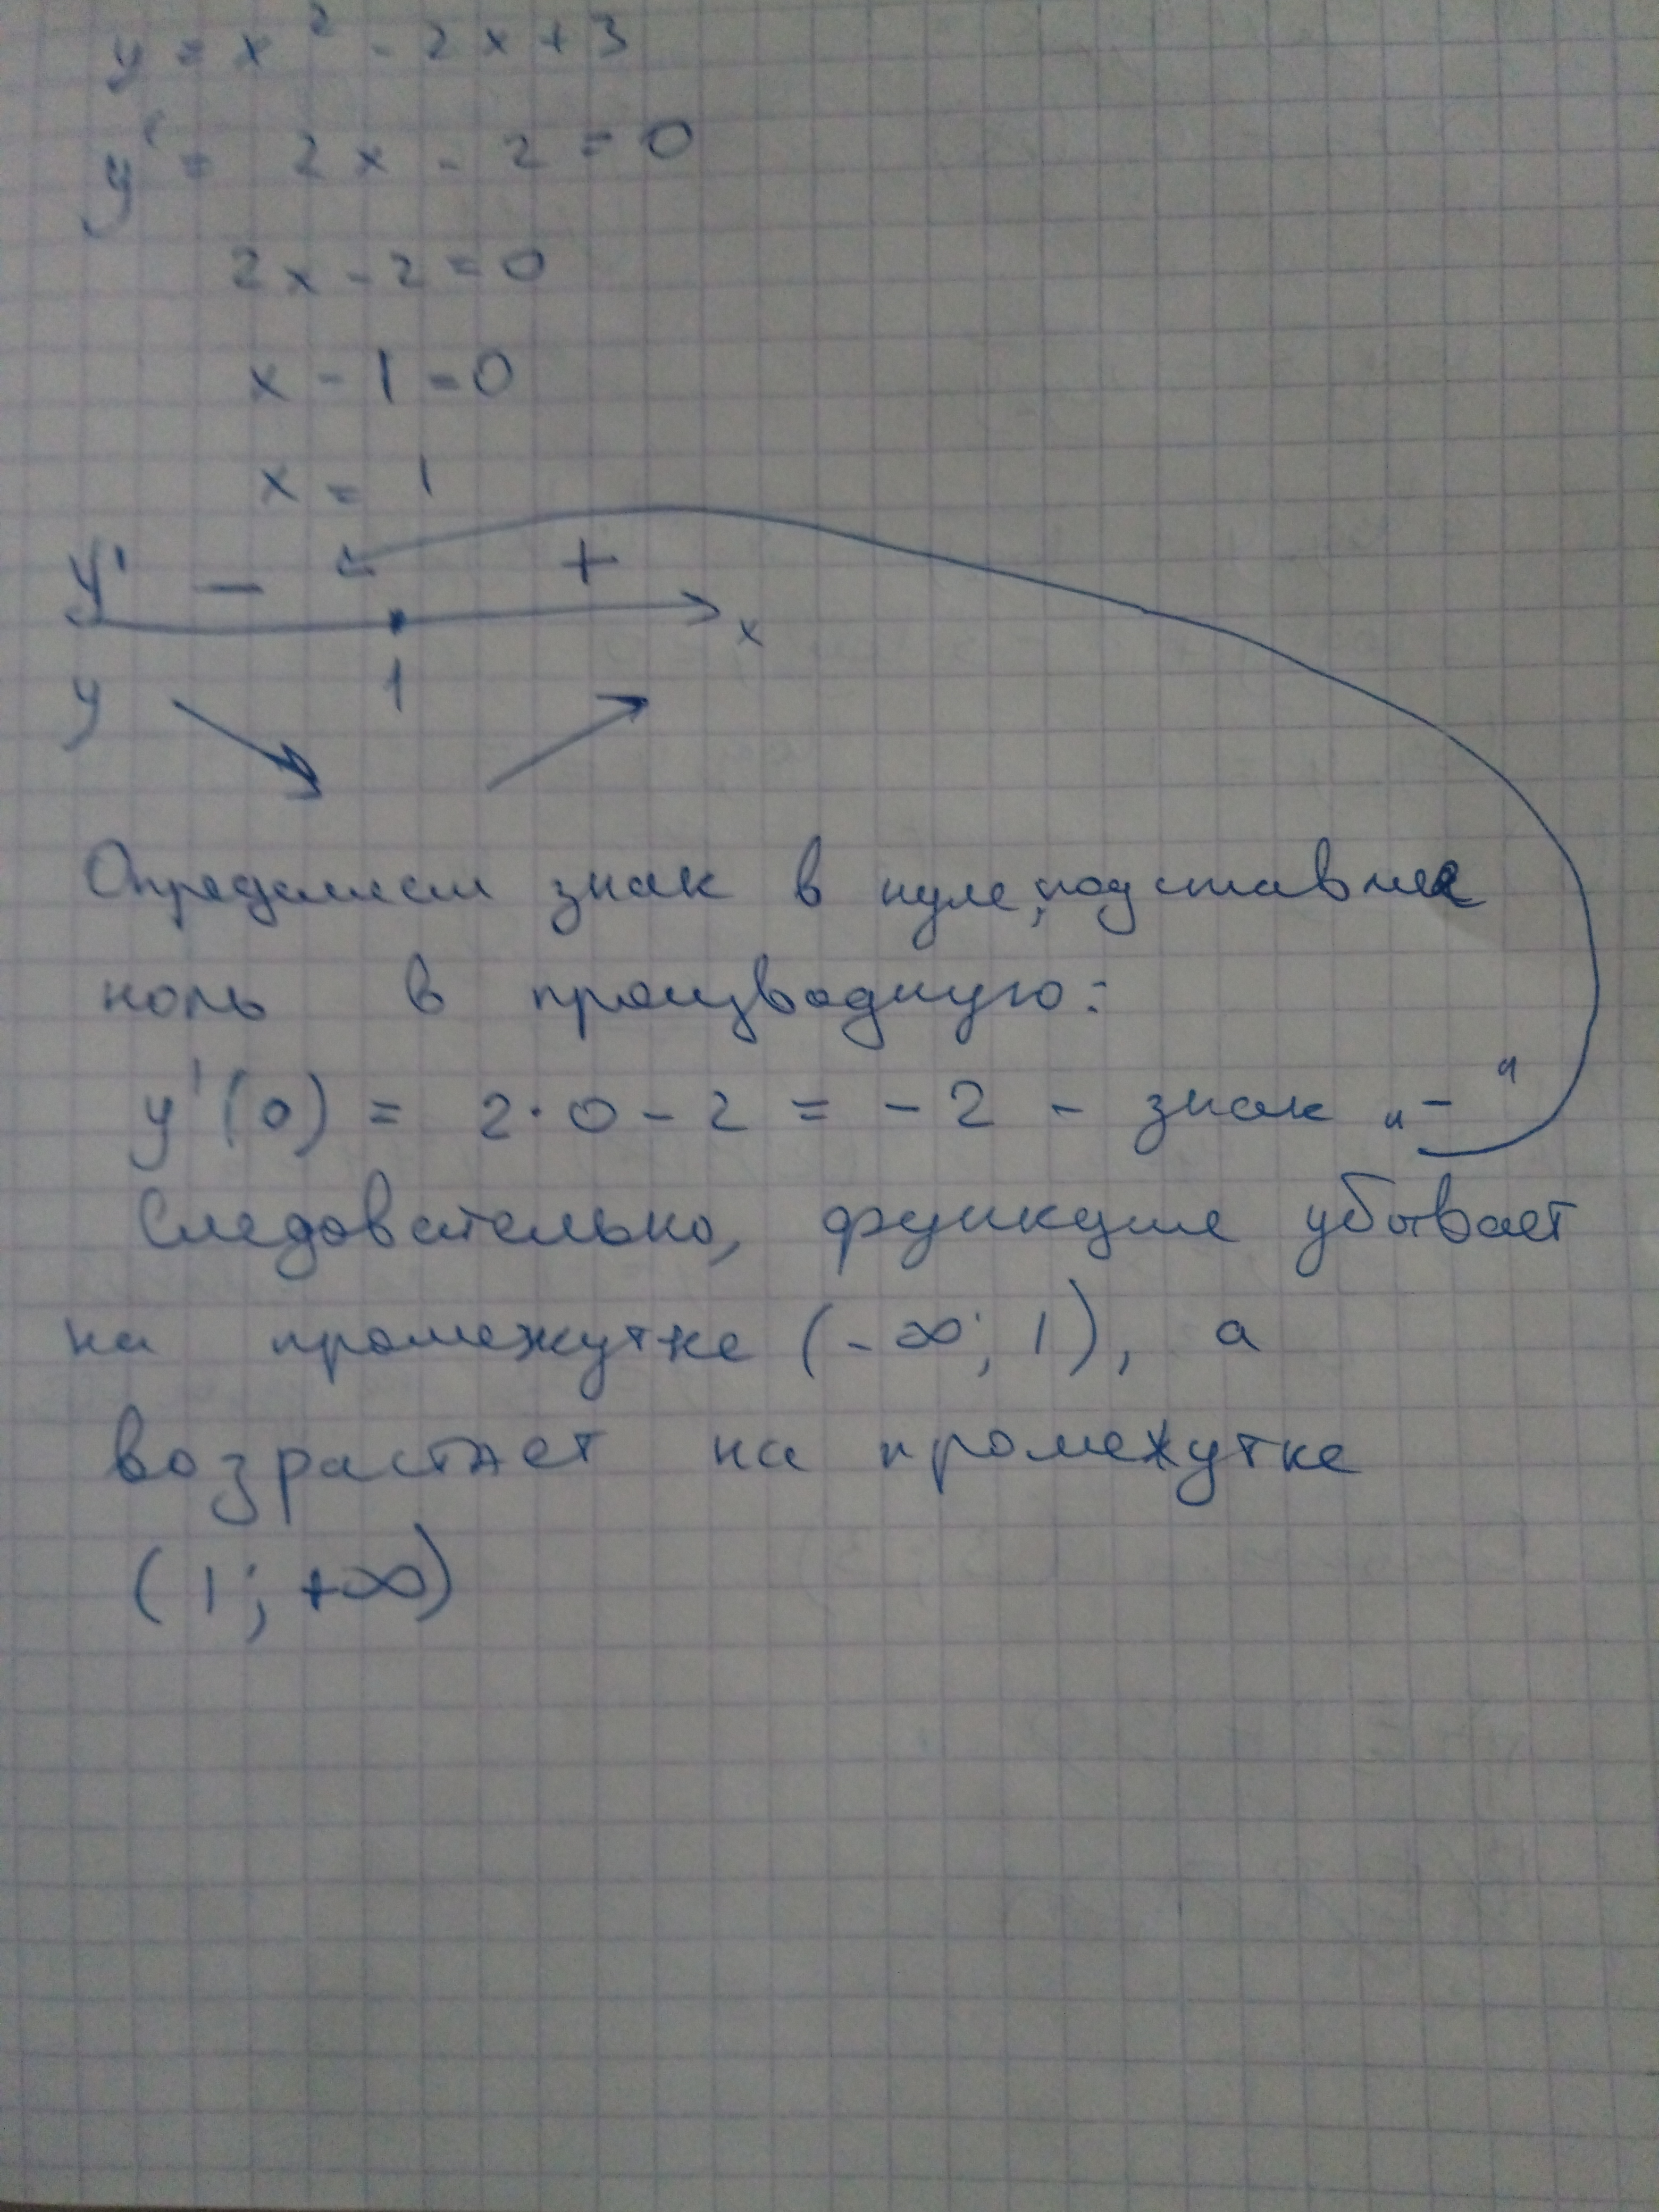 y = x² - 2x + 3
y' = 2x - 2 = 0
2x - 2 = 0
x - 1 = 0
x = 1
y' − +
x
y 1
Определяем знак в нуле, подставляя
ноль в производную:
y'(0) = 2·0 - 2 = -2 - знак „-“
Следовательно, функция убывает
на промежутке (-∞; 1), а
возрастает на промежутке
(1; +∞)